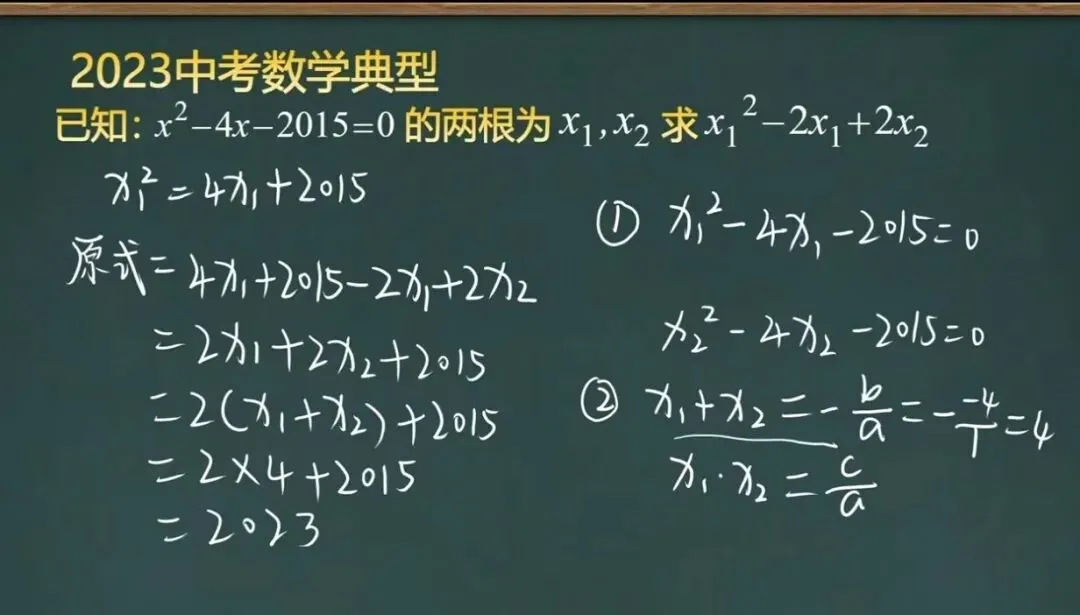 2023中考数学典型
已知: x²-4x-2015=0 的两根为 x₁,x₂ 求 x₁²-2x₁+2x₂
x₁²=4x₁+2015
原式=4x₁+2015-2x₁+2x₂
=2x₁+2x₂+2015
=2(x₁+x₂)+2015
=2×4+2015
=2023
① x₁²-4x₁-2015=0
x₂²-4x₂-2015=0
② x₁+x₂=-b/a=--4/1=4
x₁·x₂=c/a